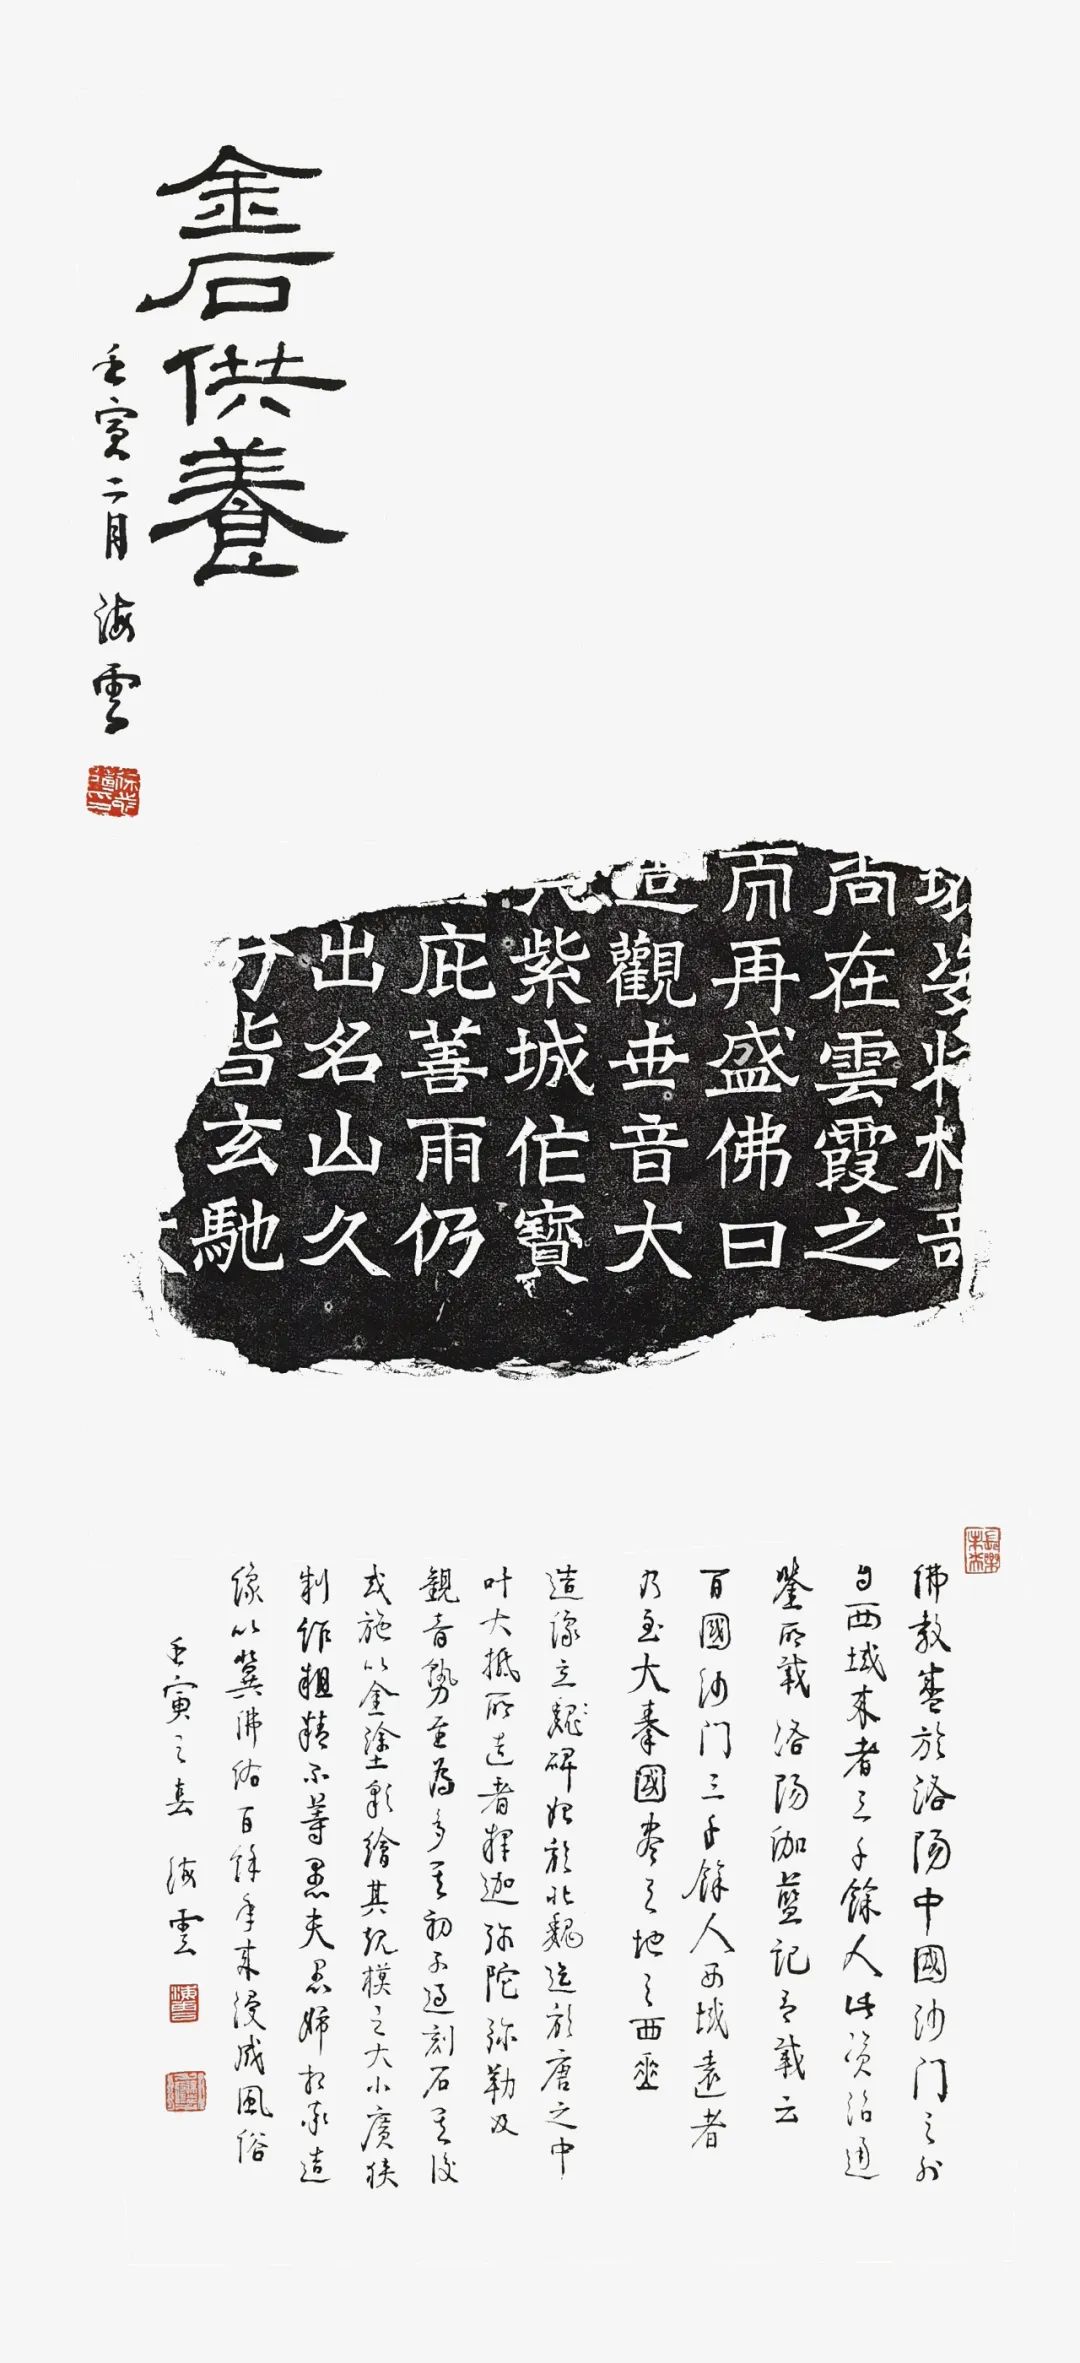 金石供養
壬寅二月 海雲
尚在雲霞之
而再盛佛曰
造觀世音大
紫城伫寶
庇善雨仍
出名山久
分皆玄馳
佛教盛於洛陽中國沙门之外
自西域来者三千餘人此资治通
鑒所载洛陽伽藍記亦载云
百國沙门三千餘人西域遠者
乃至大秦國盡天地之西垂
造像立魏碑始於北魏迄於唐之中
叶大抵所造者释迦弥陀弥勒及
觀音勢至為多其初不過刻石其後
或施以金塗彩繪其规模之大小廣狭
制作粗精不等愚夫愚婦相率造
像以冀佛佑百餘年来浸成風俗
壬寅之春 海雲